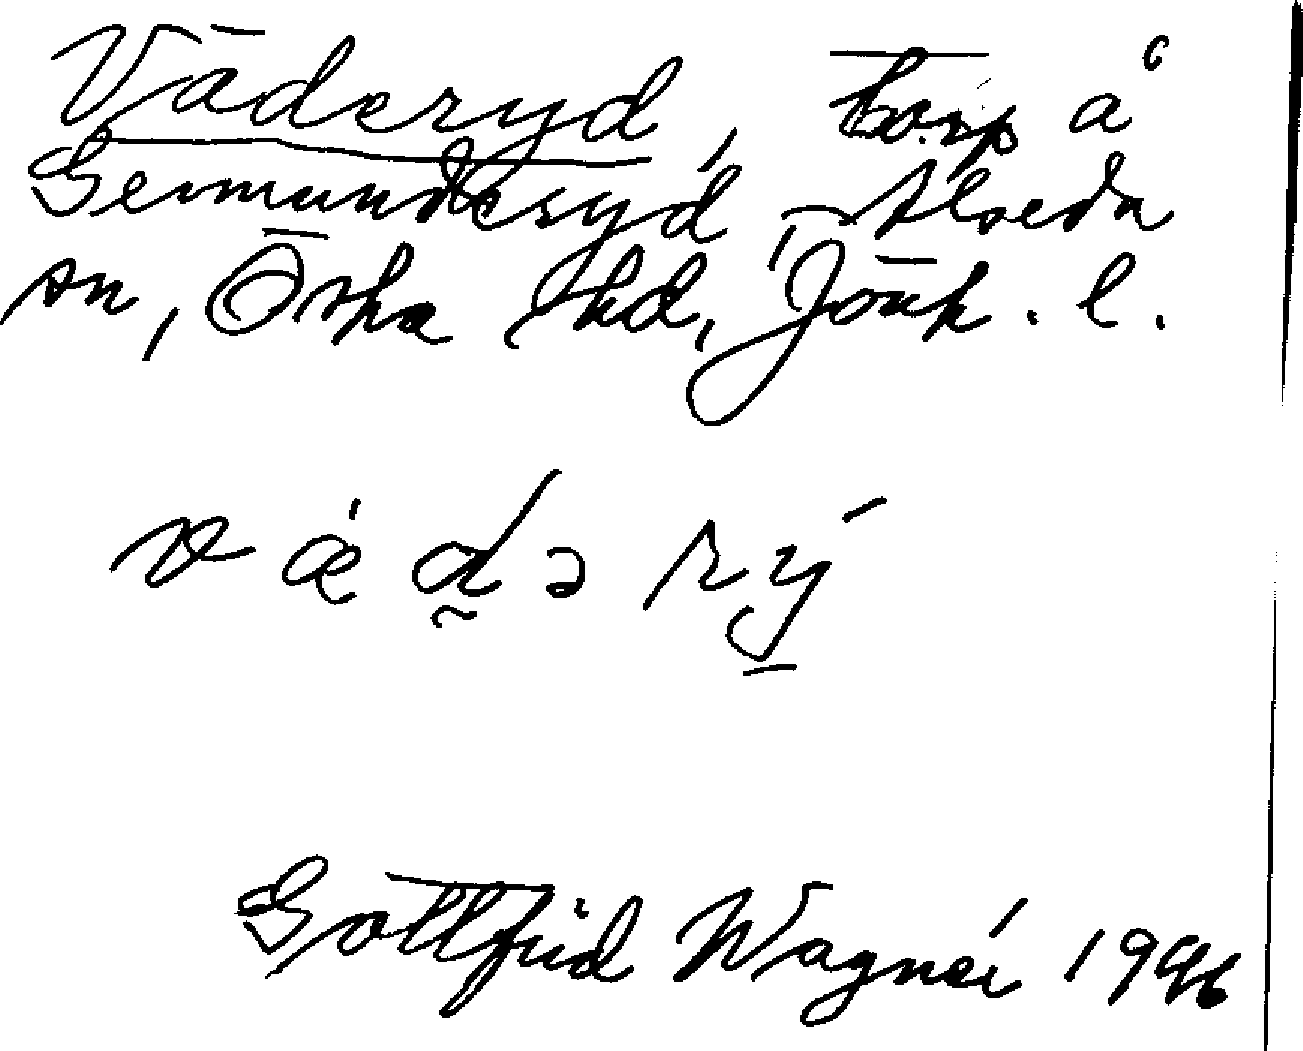 Väderyd, torp å
Germunderyd, Alseda
sn, Östra hd, Jönk. l.
væ´dərý
Gottfrid Wagnér 1946